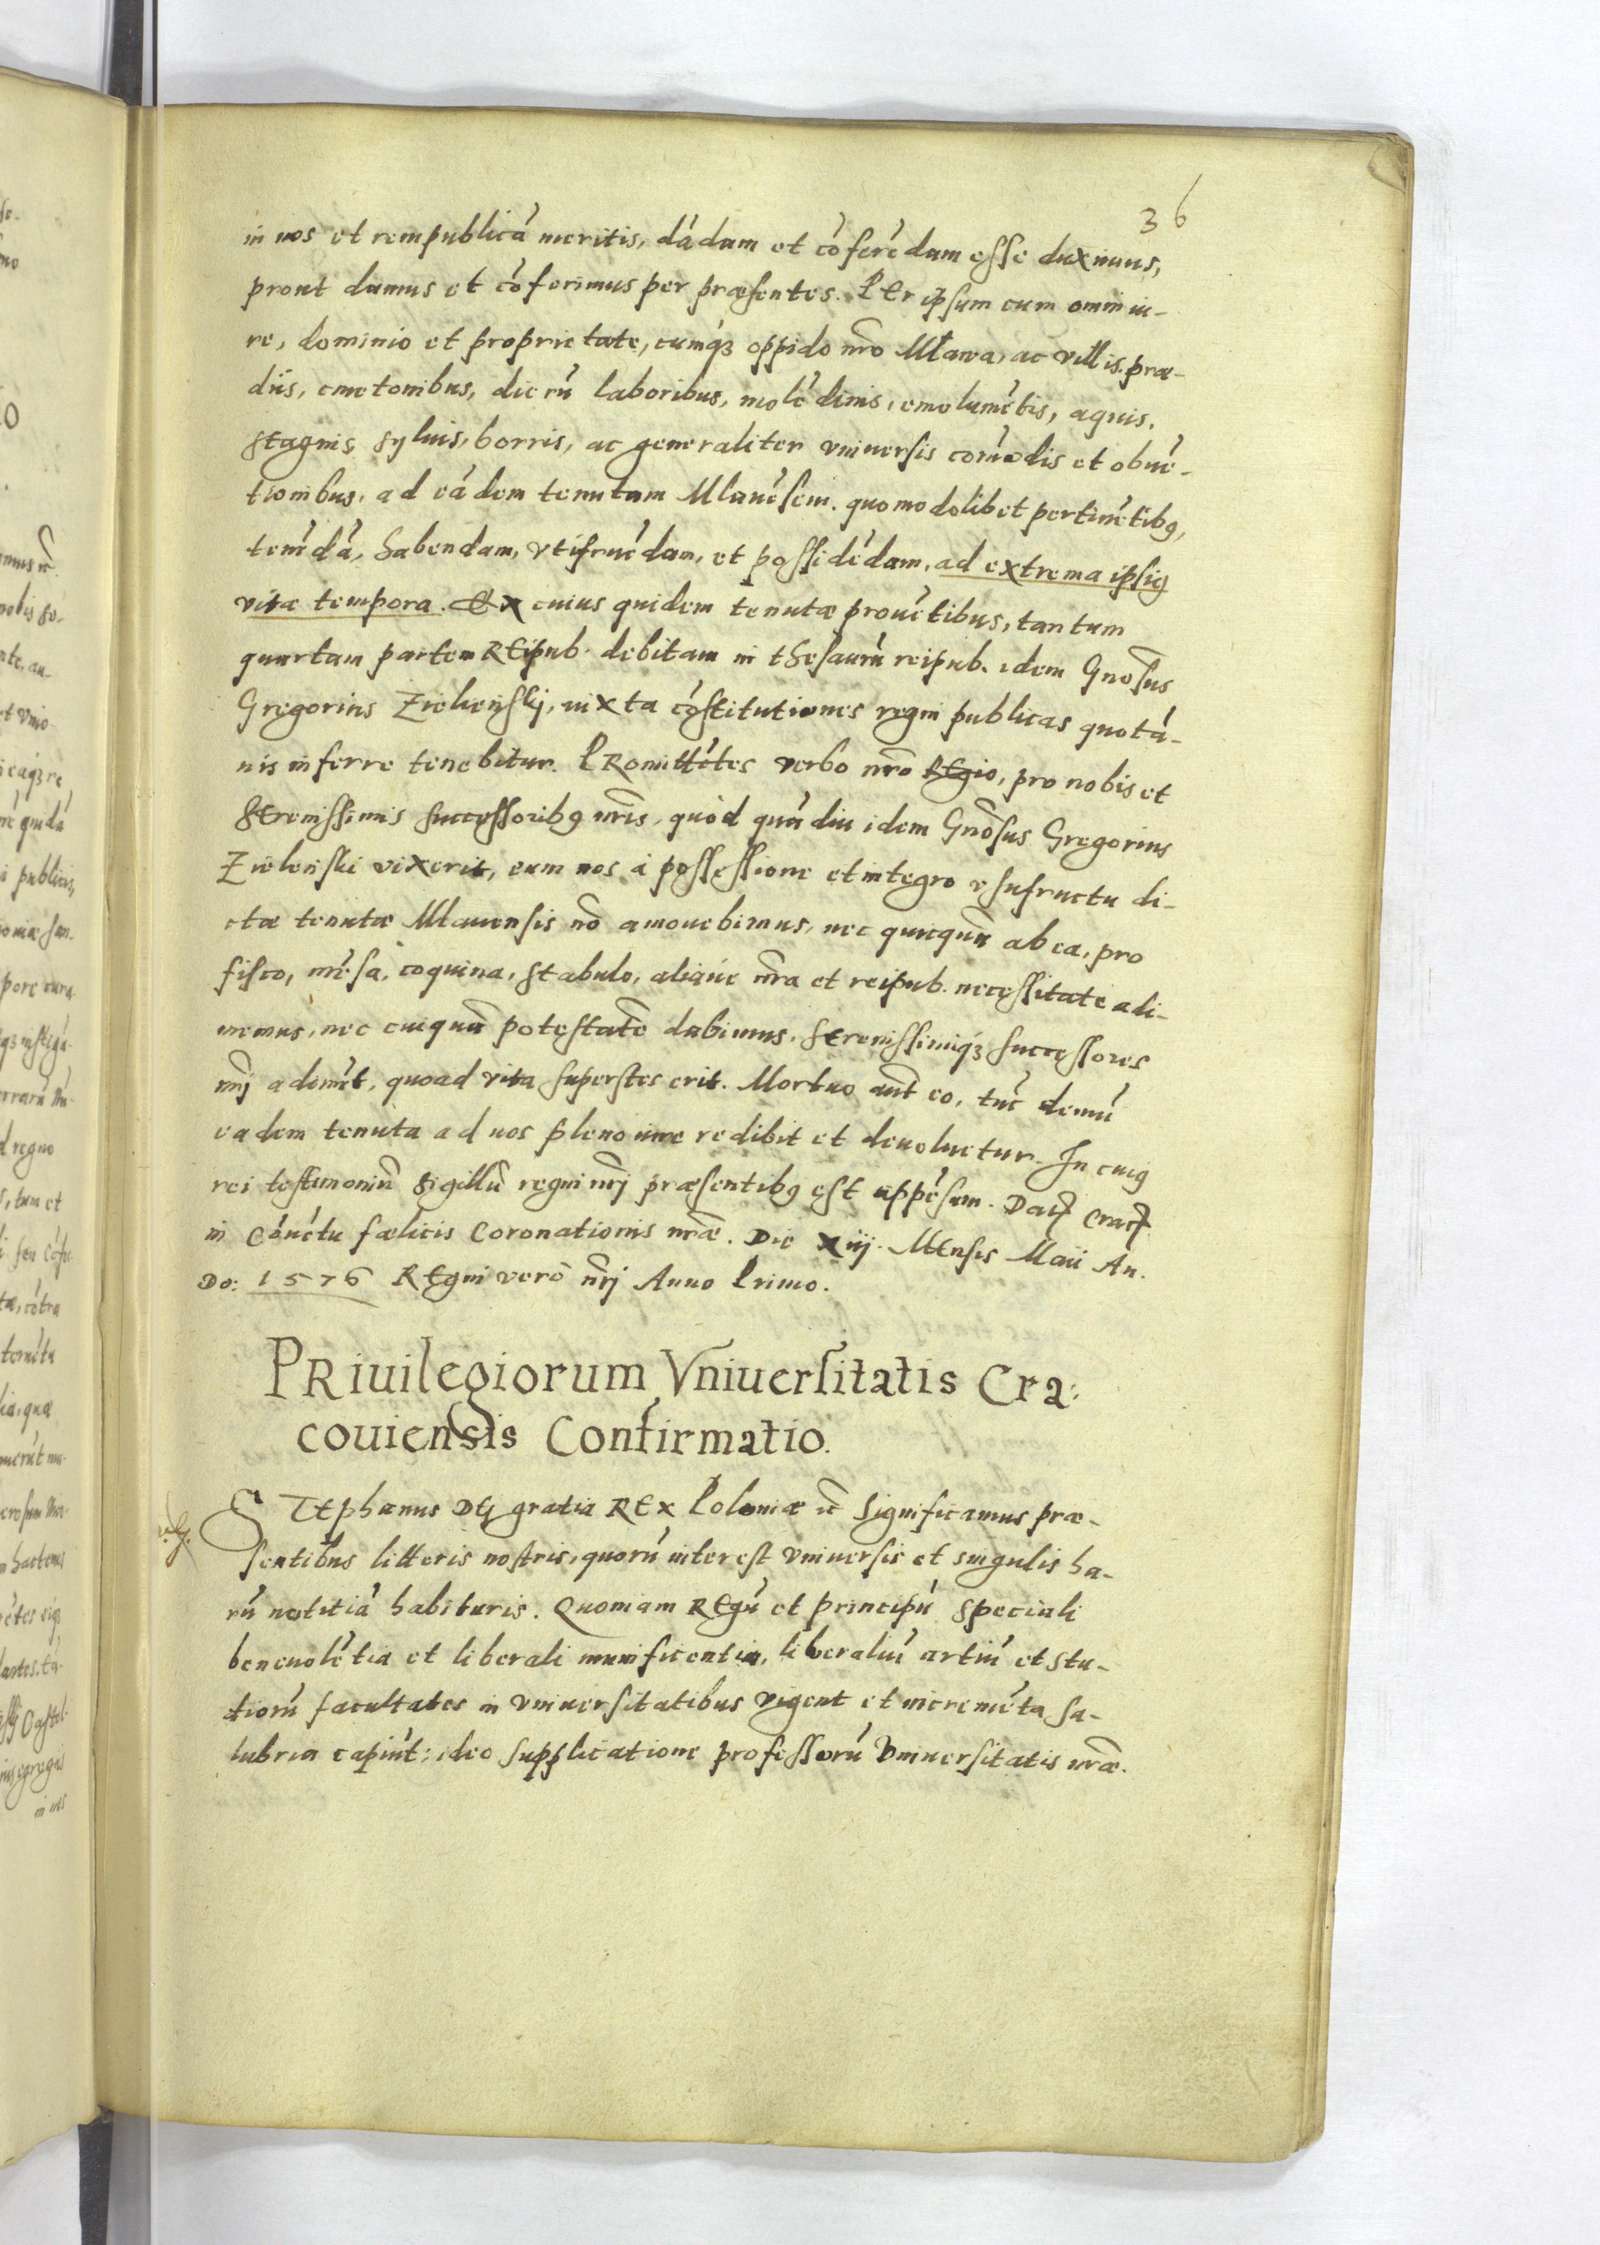 36
in nos et rempublicá meritis, dádam et cóferédam esse duximus,
prout damus et cóferimus per præsentes. PEr ipsum cum omni iu-
re, dominio et proprietate, cumq́ꝫ oppido nr̃o Mława, ac villis præ-
diis, cmetonibus, dierú laboribus, molédinis, emolumétis, aquis,
stagnis, syluis, borris, ac generaliter vniuersis comodis et obué-
tionibus, ad eádem tenutam Mlauésem. quomodolibet pertinétibꝯ,
tenédá, habendam, vtifruédam, et possidédam, ad extrema ipsiꝯ
vitæ tempora. Ex cuius quidem tenutæ prouétibus, tantum
quartam partem REipub. debitam in thesaurú reipub. idem Gnõsus
Gregorius Zielienskij, iuxta cóstitutiones regni publicas quotá-
nis inferre tenebitur. PRomittétes verbo nr̃o REgio, pro nobis et
SErenissimis successoribꝯ nr̃is, quòd quádiu idem Gnõsus Gregorius
Zielenski vixerit, eum nos à possessione et integro vsufructu di-
ctæ tenutæ Mlauensis nõ amouebimus, nec quicquã ab ea, pro
fisco, mésa, coquina, stabulo, aliaúe nr̃a et reipub. necessitate adi-
memus, nec cuiquã potestatẽ dabimus. SErenissimiq́ꝫ successores
nr̃ij adimét, quoad vita superstes erit. Mortuo aũt eo, túc demú
eadem tenuta ad nos pleno iure redibit et deuoluetur. In cuiꝯ
rei testimoniũ sigillũ regni nr̃ij præsentibꝯ est appésum. Datꝭ Cracꝭ
in Cóuétu fælicis Coronationis nr̃æ. Die xiij. MEnsis Maii An.
Do: 1576 REgni verò nr̃ij Anno Primo.
PRiuilegiorum Vniuersitatis Cra:
couiensis Confirmatio.
STEphanus DEj gratia REx Poloniæ etc̃ Significamus præ-
sentibus litteris nostris, quorú interest vniuersis et singulis ha-
rú notitiá habituris. Quoniam REgú et principú speciali
beneuolétia et liberali munificentia, liberaliú artiú et stu-
diorú facultates in vniuersitatibus vigent et increméta sa-
lubria capiút: ideo supplicatione professorú Vniuersitatis nr̃æ.